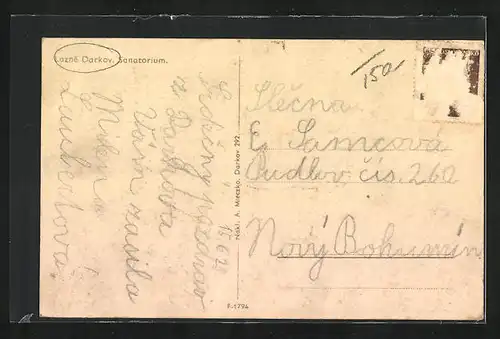 Lazně Darkov. Sanatorium.
Srdečný pozdrav
z Darkova
Vám zasila
Milena
Laubertova
Nákl. A. Mreczko, Darkov 292.
F-1794
150
Slečna
E. Samcová
Pudlov čís. 260
Nový Bohumín